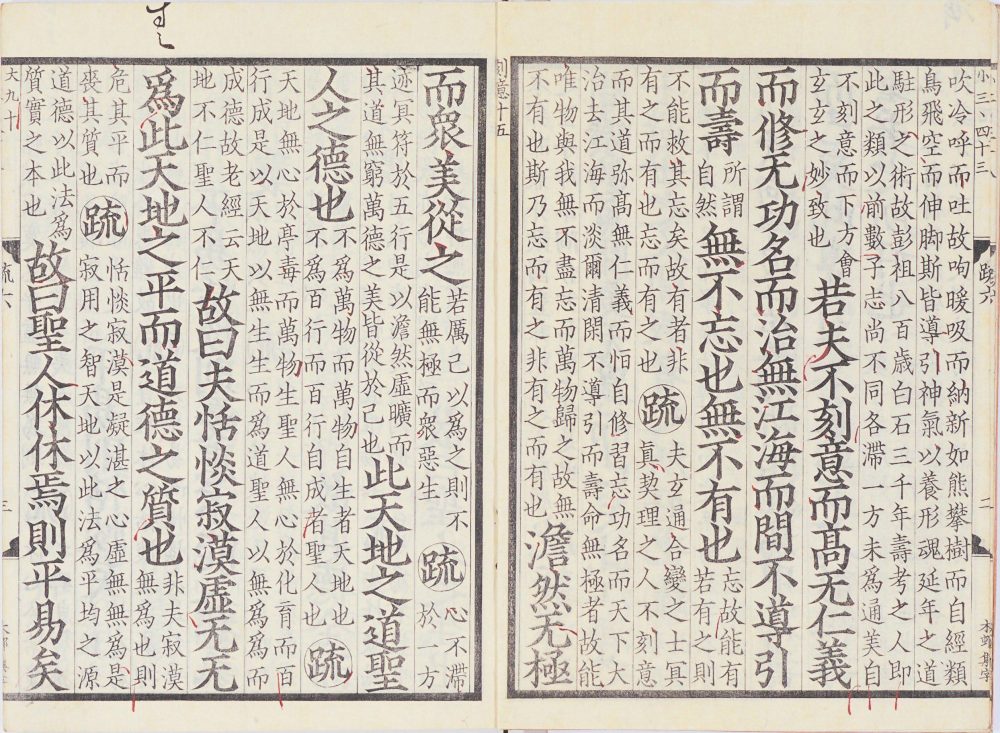 小三
吹冷呼而吐故呴暖吸而納新如熊攀樹而自經類
鳥飛空而伸脚斯皆導引神氣以養形魂延年之道
駐形之術故彭祖八百歲白石三千年壽考之人即
此之類以前數子志尚不同各滯一方未爲通美自
不刻意而下方會
玄玄之妙致也
若夫不刻意而高无仁義
而修无功名而治無江海而間不導引
而壽
所謂
自然
無不忘也無不有也
忘故能有
若有之則
不能救其忘矣故有者非
有之而有也忘而有之也
疏
夫玄通合變之士冥
真契理之人不刻意
而其道弥高無仁義而恒自修習忘功名而天下大
治去江海而淡爾清閑不導引而壽命無極者故能
唯物與我無不盡忘而萬物歸之故無
不有也斯乃忘而有之非有之而有也
澹然无極
疏六
二
刻意十五
而眾美從之
若厲己以爲之則不
能無極而眾惡生
疏
心不滯
於一方
迹冥符於五行是以澹然虛曠而
其道無窮萬德之美皆從於己也
此天地之道聖
人之德也
不爲萬物而萬物自生者天地也
不爲百行而百行自成者聖人也
疏
天地無心於亭毒而萬物生聖人無心於化育而百
行成是以天地以無生生而爲道聖人以無爲而
成德故老經云天
地不仁聖人不仁
故曰夫恬惔寂漠虛无无
爲此天地之平而道德之質也
非夫寂漠
無爲也則
危其平而
喪其質也
疏
恬惔寂漠是凝湛之心虛無無爲是
寂用之智天地以此法爲平均之源
道德以此法爲
質實之本也
故曰聖人休休焉則平易矣
大九十
疏六
三